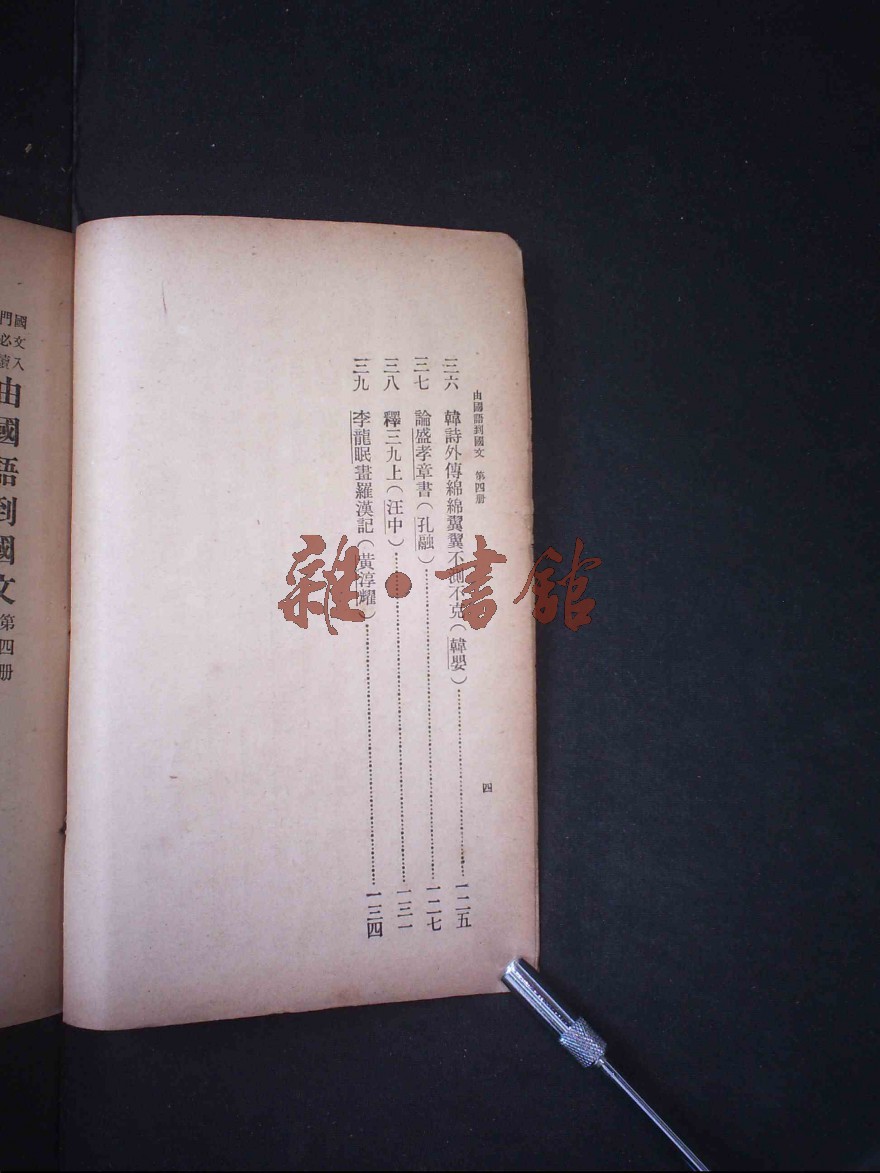 由國語到國文　第四册
四
三六　韓詩外傳綿綿翼翼不測不克（韓嬰）…………一二五
三七　論盛孝章書（孔融）…………一二七
三八　釋三九上（汪中）…………一三一
三九　李龍眠畫羅漢記（黃淳耀）…………一三四
國文入
門必讀
由國語到國文第四册
雜·書館